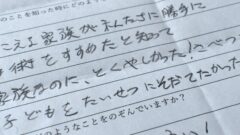 のことを知った時にどのよ
家族が私たちに勝手に
術をすすめたと知って
家族なのに、とてもくやしかった!
子どもをたいせつにそだてたかった
のようなことをのぞんでいますか?